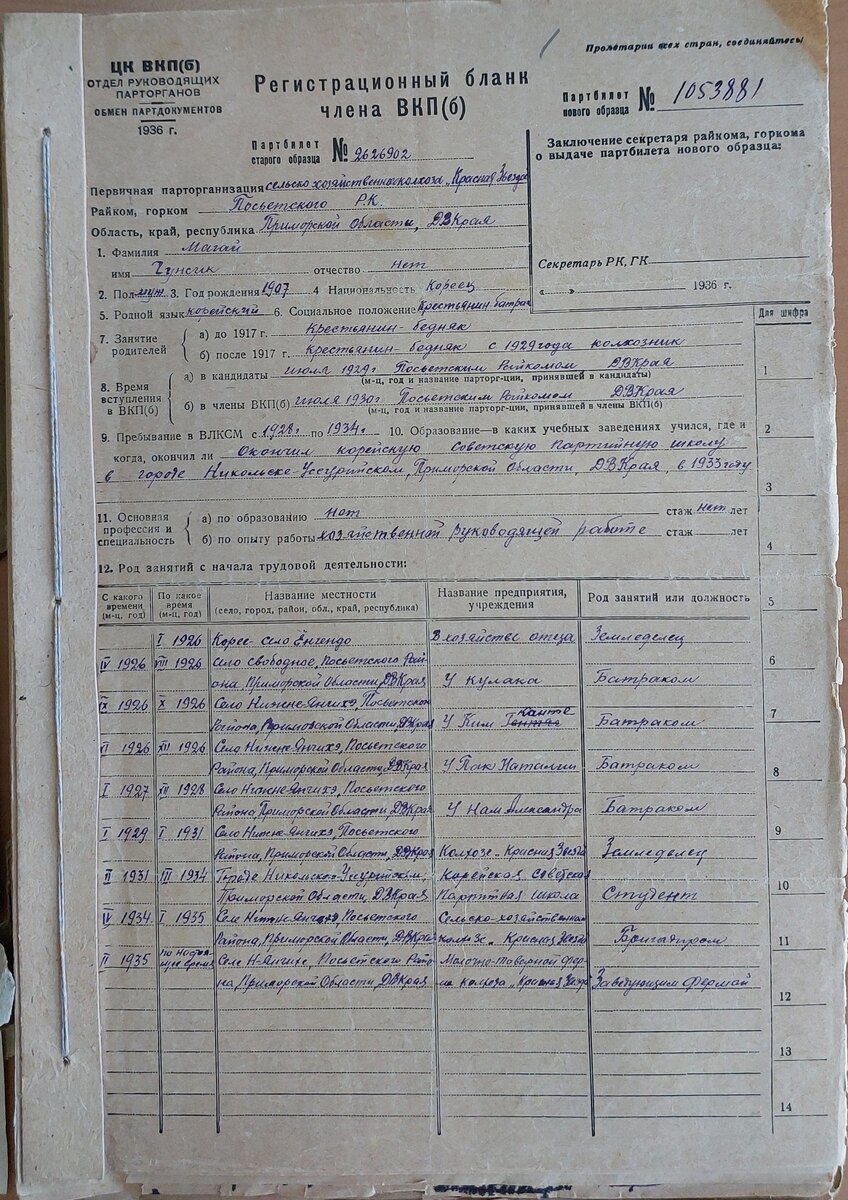 Пролетарии всех стран, соединяйтесь!
ЦК ВКП(б)
ОТДЕЛ РУКОВОДЯЩИХ
ПАРТОРГАНОВ
ОБМЕН ПАРТДОКУМЕНТОВ
1936 г.
Регистрационный бланк
члена ВКП(б)
Партбилет
старого образца № 2626902
Партбилет
нового образца № 1053881
Заключение секретаря райкома, горкома
о выдаче партбилета нового образца:
Секретарь РК, ГК
„ “ 1936 г.
Первичная парторганизация сельско хозяйственн колхоза „Красная Звезда
Райком, горком Посьетского Р.К.
Область, край, республика Приморской Области, ДВКрая
1. Фамилия Магай
имя Чунсик отчество нет
2. Пол муж 3. Год рождения 1907 4 Национальность Кореец
5. Родной язык корейский 6. Социальное положение Крестьянин батрак
7. Занятие родителей а) до 1917 г. Крестьянин-бедняк
б) после 1917 г. крестьянин-бедняк с 1929 года колхозник
8. Время вступления в ВКП(б) а) в кандидаты июль 1929 г Посьетским Райкомом ДВКрая
(м-ц, год и название парторг-ции, принявшей в кандидаты)
б) в члены ВКП(б) июля 1930 г Посьетским Райкомом ДВКрая
(м-ц, год и название парторг-ции, принявшей в члены ВКП(б)
9. Пребывание в ВЛКСМ с 1928 г по 1934 г 10. Образование—в каких учебных заведениях учился, где и
когда, окончил ли окончил корейскую Советскую партийную школу
в городе Никольске Уссурийском, Приморской Области, ДВКрая, в 1933 году
11. Основная профессия и специальность а) по образованию нет стаж нет лет
б) по опыту работы хозяйственной руководящей работе стаж лет
12. Род занятий с начала трудовой деятельности:
С какого времени (м-ц, год) По какое время (м-ц, год) Название местности (село, город, район, обл., край, республика) Название предприятия, учреждения Род занятий или должность
I 1926 Корее село Енгендо В хозяйстве отца Земледелец
IV 1926 VIII 1926 Село Свободное, Посьетского Рай-
она Приморской Области, ДВКрая У кулака Батраком
IX 1926 X 1926 Село Нижне-Янчихэ, Посьетского
Района, Приморской Области, ДВКрая У Ким Батраком
XI 1926 XII 1926 Село Нижне-Янчихэ, Посьетского
Района, Приморской Области, ДВКрая У Пак Наталии Батраком
I 1927 XII 1928 Село Нижне-Янчихэ, Посьетского
Района Приморской Области, ДВКрая У Нам Александра Батраком
I 1929 I 1931 Село Нижне-Янчихэ Посьетского
Района, Приморской Области, ДВКрая Колхозе „Красная Звезда Земледелец
II 1931 III 1934 Городе Никольско-Уссурийском, Корейская Советская
Приморской Области, ДВКрая Партийная школа Студент
IV 1934 I 1935 Селе Нижне-Янчихэ, Посьетского Сельско-хозяйственная
Района, Приморской Области, ДВКрая колхозе „Красная Звезда Бригадиром
II 1935 по настоящее время Селе Н-Янчихе, Посьетского Райо-
на, Приморской Области, ДВКрая Молочно-товарной фер-
ма колхоза „Красная Звезда Заведующим фермой
Для шифра
1
2
3
4
5
6
7
8
9
10
11
12
13
14